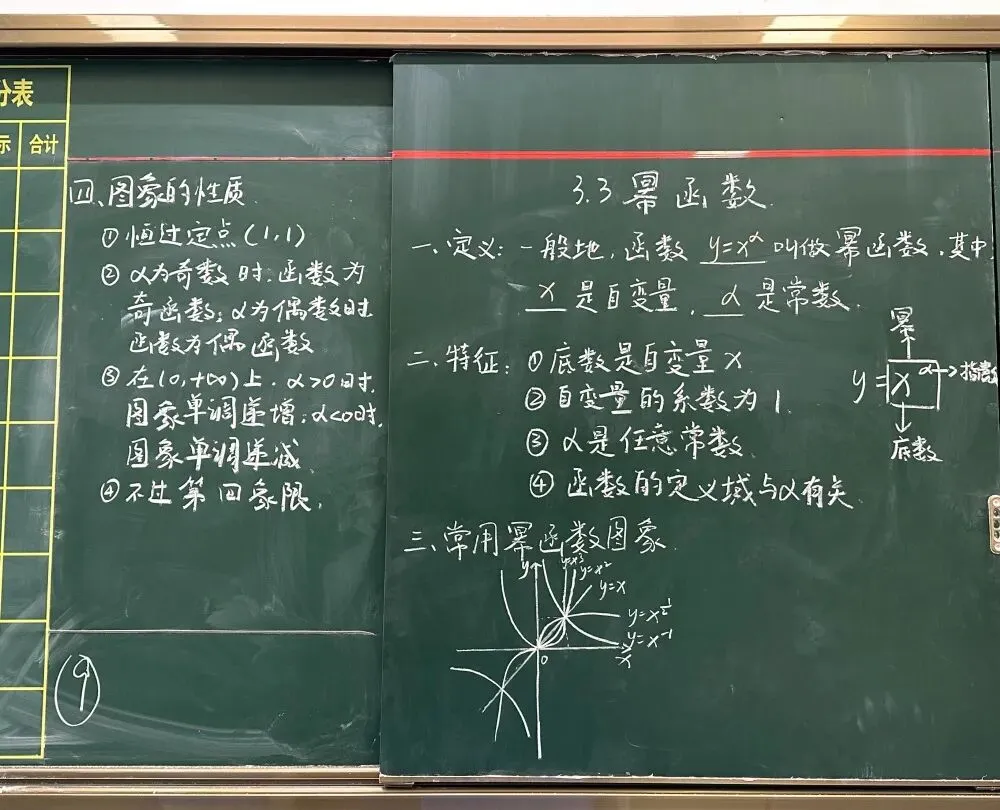 分表
示 合计
四、图象的性质
①恒过定点(1,1)
②α为奇数时,函数为
奇函数;α为偶数时
函数为偶函数
③在(0,+∞)上,α>0时,
图象单调递增;α<0时,
图象单调递减
④不过第四象限,
9
3.3幂函数
一、定义:一般地,函数 y=x^α 叫做幂函数,其中
x 是自变量, α 是常数.
二、特征:①底数是自变量x
②自变量的系数为1.
③α是任意常数
④函数的定义域与α有关
幂
y=x^α→指数
底数
三、常用幂函数图象
y
y=x³
y=x²
y=x
y=x^½
y=x⁻¹
0
x